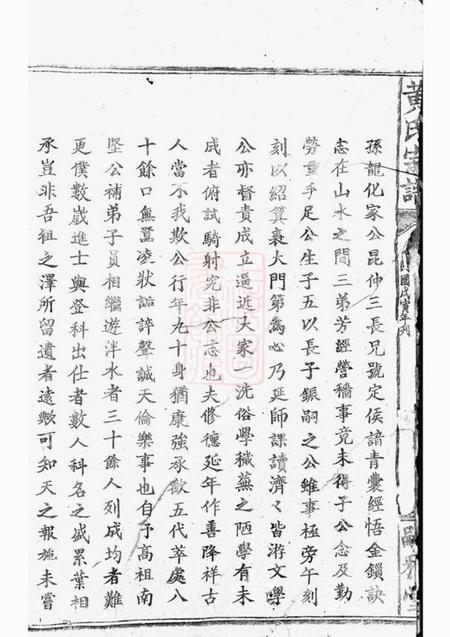 孫龍化家公昆仲三長兄號定侯諳青囊經悟金鎖訣
志在山水之間三弟芳經營穡事竟未得子公念及勤
勞重手足公生子五以長子鋠嗣之公雖事極旁午刻
刻以紹箕裘大門第為心乃延師課讀濟々皆游文學
公亦督責成立逼近大家一洗俗學穢蕪之陋學有未
成者俯試騎射究非公志也夫修德延年作善降祥古
人當不我欺公行年九十身猶康強承歡五代萃處八
十餘口無囂凌狀詬誶聲誠天倫樂事也自予高祖南
堅公補弟子員相繼遊泮水者三十餘人列成均者難
更僕數嵗進士與登科出仕者數人科名之盛累葉相
承豈非吾祖之澤所留遺者遠歟可知天之報施未嘗
黃氏宗譜